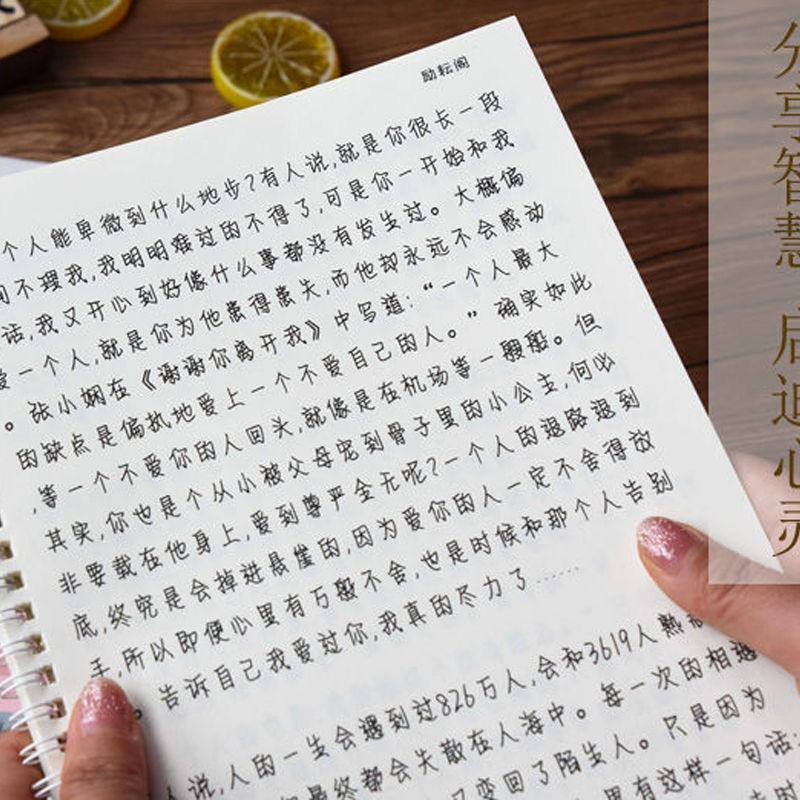 励耘阁
个人能卑微到什么地步?有人说,就是你很长一段
间不理我,我明明难过的不得了,可是你一开始和我
话,我又开心到好像什么事都没有发生过。大概偏
爱一个人,就是你为他患得患失,而他却永远不会感动
。张小娴在《谢谢你离开我》中写道:“一个人最大
的缺点是偏执地爱上一个不爱自己的人。”确实如此
,等一个不爱你的人回头,就像是在机场等一艘船。但
其实,你也是个从小被父母宠到骨子里的小公主,何必
非要载在他身上,爱到尊严全无呢?一个人的退路退到
底,终究是会掉进悬崖的,因为爱你的人一定不舍得放
手,所以即便心里有万般不舍,也是时候和那个人告别
。告诉自己我爱过你,我真的尽力了……
人说,人的一生会遇到过826万人,会和3619人熟
最终都会失散在人海中。每一次的相遇
又变回了陌生人。只是因为
里有这样一句话:
分享智慧 启迪心灵